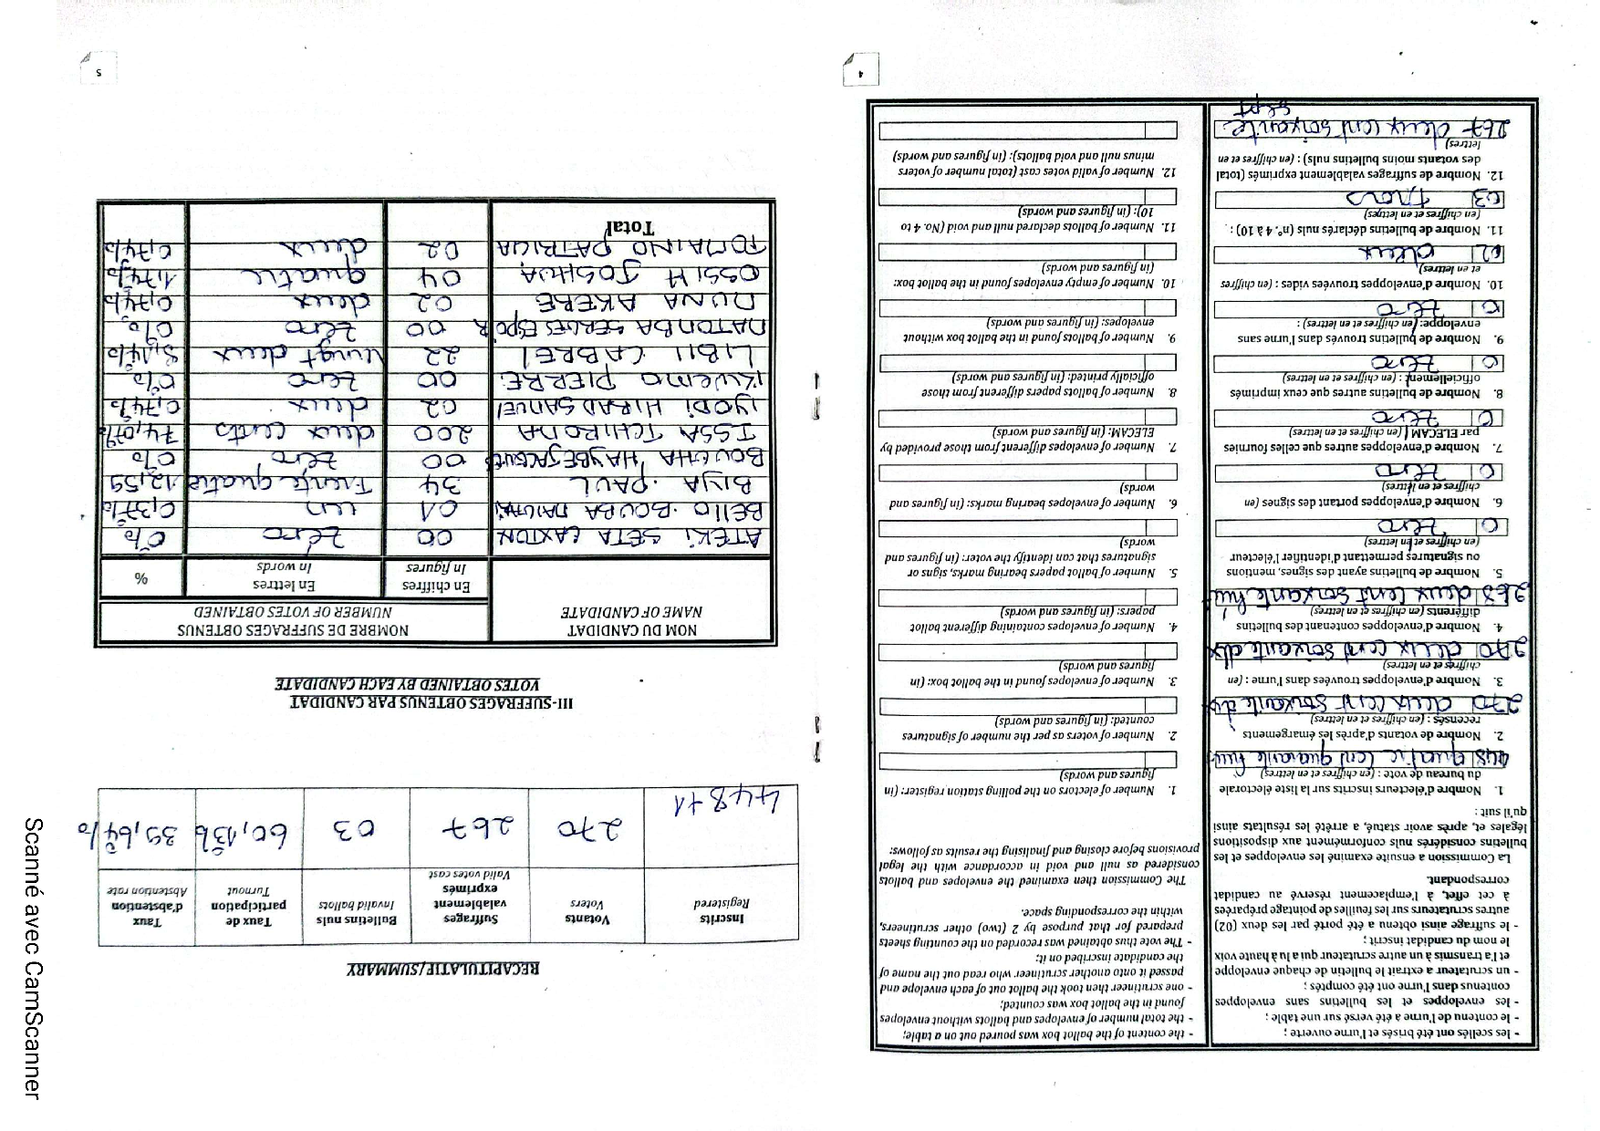 4
- les scellés ont été brisés et l'urne ouverte ;
- le contenu de l'urne a été versé sur une table ;
- les enveloppes et les bulletins sans enveloppes
contenus dans l'urne ont été comptés ;
- un scrutateur a extrait le bulletin de chaque enveloppe
et l'a transmis à un autre scrutateur qui a lu à haute voix
le nom du candidat inscrit ;
- le suffrage ainsi obtenu a été porté par les deux (02)
autres scrutateurs sur les feuilles de pointage préparées
à cet effet, à l'emplacement réservé au candidat
correspondant.
La Commission a ensuite examiné les enveloppes et les
bulletins considérés nuls conformément aux dispositions
légales et, après avoir statué, a arrêté les résultats ainsi
qu'il suit :
1. Nombre d'électeurs inscrits sur la liste électorale
du bureau de vote : (en chiffres et en lettres)
448 quatre cent quarante huit
2. Nombre de votants d'après les émargements
recensés : (en chiffres et en lettres)
270 deux cent soixante dix
3. Nombre d'enveloppes trouvées dans l'urne : (en
chiffres et en lettres)
270 deux cent soixante dix
4. Nombre d'enveloppes contenant des bulletins
différents (en chiffres et en lettres)
268 deux cent soixante huit
5. Nombre de bulletins ayant des signes, mentions
ou signatures permettant d'identifier l'électeur
(en chiffres et en lettres)
0 zéro
6. Nombre d'enveloppes portant des signes (en
chiffres et en lettres)
0 zéro
7. Nombre d'enveloppes autres que celles fournies
par ELECAM (en chiffres et en lettres)
0 zéro
8. Nombre de bulletins autres que ceux imprimés
officiellement : (en chiffres et en lettres)
0 zéro
9. Nombre de bulletins trouvés dans l'urne sans
enveloppe: (en chiffres et en lettres) :
0 zéro
10. Nombre d'enveloppes trouvées vides : (en chiffres
et en lettres)
02 deux
11. Nombre de bulletins déclarés nuls (n°. 4 à 10) :
(en chiffres et en lettres)
03 trois
12. Nombre de suffrages valablement exprimés (total
des votants moins bulletins nuls) : (en chiffres et en
lettres)
267 deux cent soixante
sept
- the content of the ballot box was poured out on a table;
- the total number of envelopes and ballots without envelopes
found in the ballot box was counted;
- one scrutineer then took the ballot out of each envelope and
passed it onto another scrutineer who read out the name of
the candidate inscribed on it;
- The vote thus obtained was recorded on the counting sheets
prepared for that purpose by 2 (two) other scrutineers,
within the corresponding space.
The Commission then examined the envelopes and ballots
considered as null and void in accordance with the legal
provisions before closing and finalising the results as follows:
1. Number of electors on the polling station register: (in
figures and words)
2. Number of voters as per the number of signatures
counted: (in figures and words)
3. Number of envelopes found in the ballot box: (in
figures and words)
4. Number of envelopes containing different ballot
papers: (in figures and words)
5. Number of ballot papers bearing marks, signs or
signatures that can identify the voter: (in figures and
words)
6. Number of envelopes bearing marks: (in figures and
words)
7. Number of envelopes different from those provided by
ELECAM: (in figures and words)
8. Number of ballots papers different from those
officially printed: (in figures and words)
9. Number of ballots found in the ballot box without
envelopes: (in figures and words)
10. Number of empty envelopes found in the ballot box:
(in figures and words)
11. Number of ballots declared null and void (No. 4 to
10): (in figures and words)
12. Number of valid votes cast (total number of voters
minus null and void ballots): (in figures and words)
5
RECAPITULATIF/SUMMARY
Inscrits Registered | Votants Voters | Suffrages valablement exprimés Valid votes cast | Bulletins nuls Invalid ballots | Taux de participation Turnout | Taux d'abstention Abstention rate
448+1 | 270 | 267 | 03 | 60,13% | 39,64%
III-SUFFRAGES OBTENUS PAR CANDIDAT
VOTES OBTAINED BY EACH CANDIDATE
NOM DU CANDIDAT NAME OF CANDIDATE | NOMBRE DE SUFFRAGES OBTENUS NUMBER OF VOTES OBTAINED
En chiffres In figures | En lettres In words | %
ATEKI SETA CAXTON 00 zéro 0%
BELLO BOUBA MAIGARI 01 un 0,37%
BIYA PAUL 34 Trente quatre 12,59
BOUGHA HAYBE JACQUES 00 zéro 0%
ISSA TCHIROMA 200 deux cents 74,07%
IYODI HIRAM SAMUEL 02 deux 0,74%
KWEMO PIERRE 00 zéro 0%
LIBII CABREL 22 vingt deux 8,14%
MATOMBA SERGE ESPOIR 00 zéro 0%
MUNA AKERE 02 deux 0,74%
OSSIH JOSHUA 04 quatre 1,74%
TOMAINO PATRICIA 02 deux 0,74%
Total
Scanné avec CamScanner